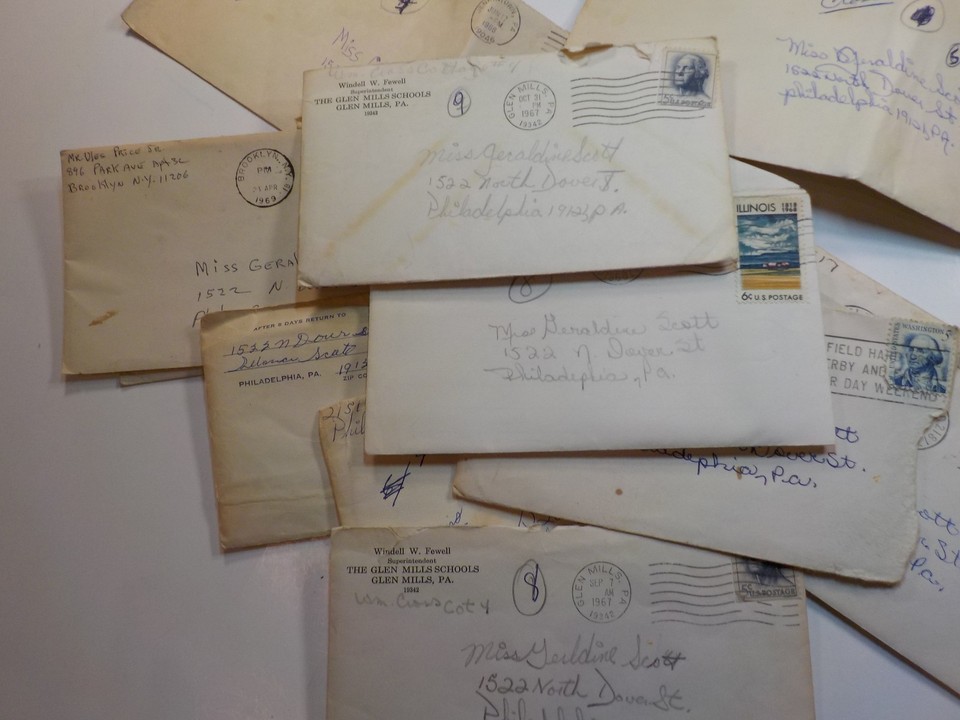 Miss
Miss Geraldine
1525 North Dover St
philadelphia 19121, PA.
Wm. Cross Cottage #4
Windell W. Fewell
Superintendent
THE GLEN MILLS SCHOOLS
GLEN MILLS, PA.
19342
9
GLEN MILLS, PA
OCT 31
PM
1967
19342
Miss Geraldine Scott
1522 North Dover St.
Philadelphia 19121, PA.
Mr. Ulee Price Sr
896 Park Ave Apt 3C
Brooklyn N.Y. 11206
BROOKLYN, N.Y.
PM
21 APR
1969
Miss Gera
1522 N.
ILLINOIS 1818 1968
6¢ U.S. POSTAGE
Miss Geraldine Scott
1522 N Dover St
Philadelphia, Pa.
AFTER 5 DAYS RETURN TO
1522 N Dover
Scott
PHILADELPHIA, PA. 1912
ZIP CO
2151
Phil
17
WASHINGTON 5
FIELD HA
ERBY AND
R DAY WEEKEND
tt
Dover St.
ladelphia, Pa.
ott
St
Pa.
Windell W. Fewell
Superintendent
THE GLEN MILLS SCHOOLS
GLEN MILLS, PA.
19342
Wm. Cross Cot 4
8
GLEN MILLS, PA
SEP 7
AM
1967
19342
5c U.S. POSTAGE
Miss Gerildine Scott
1522 North Dover St.